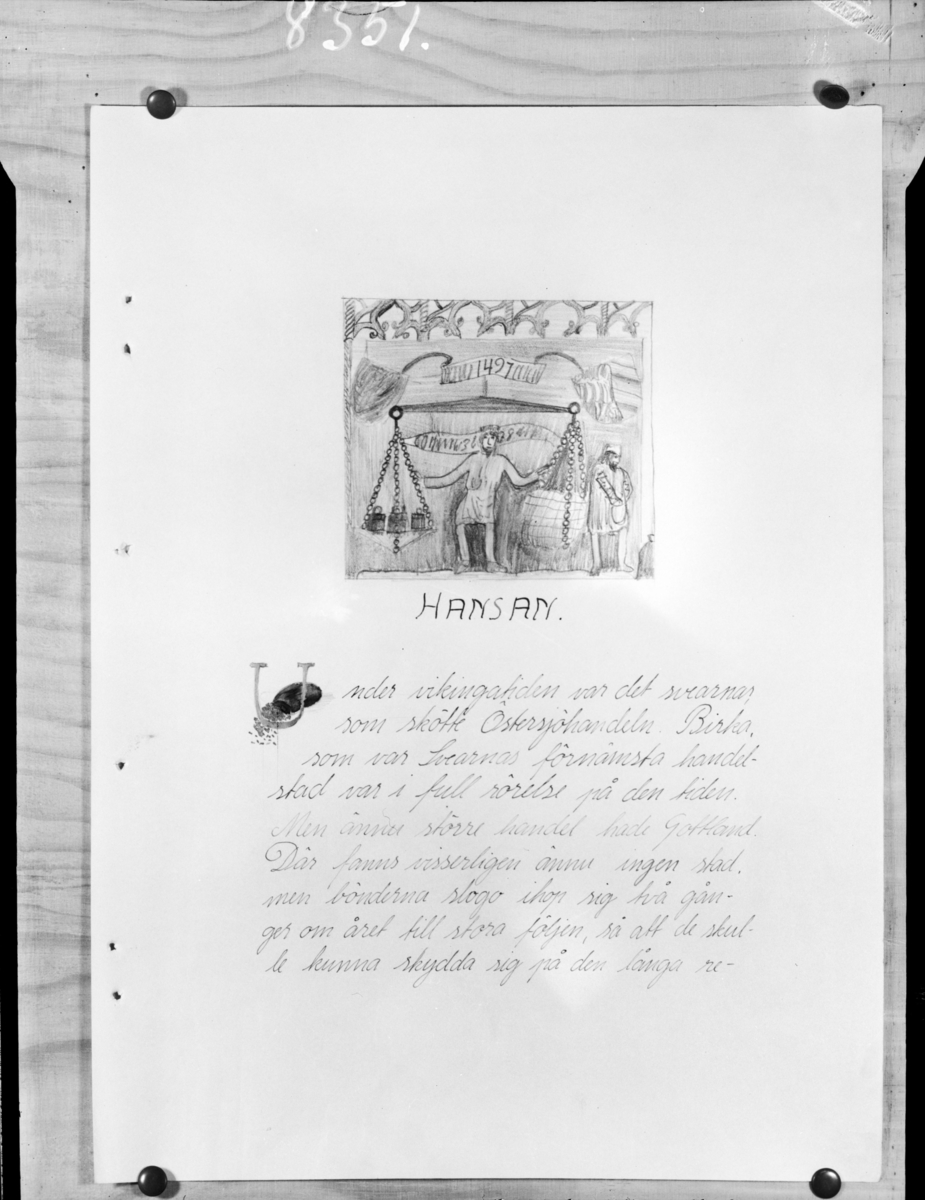 8351.
1497
HANSAN.
Under vikingatiden var det svearna,
som skötte Östersjöhandeln. Birka,
som var Svearnas förnämsta handel-
stad var i full rörelse på den tiden.
Men ännu större handel hade Gottland.
Där fanns visserligen ännu ingen stad,
men bönderna slogo ihop sig två gån-
ger om året till stora följen, så att de skul-
le kunna skydda sig på den långa re-